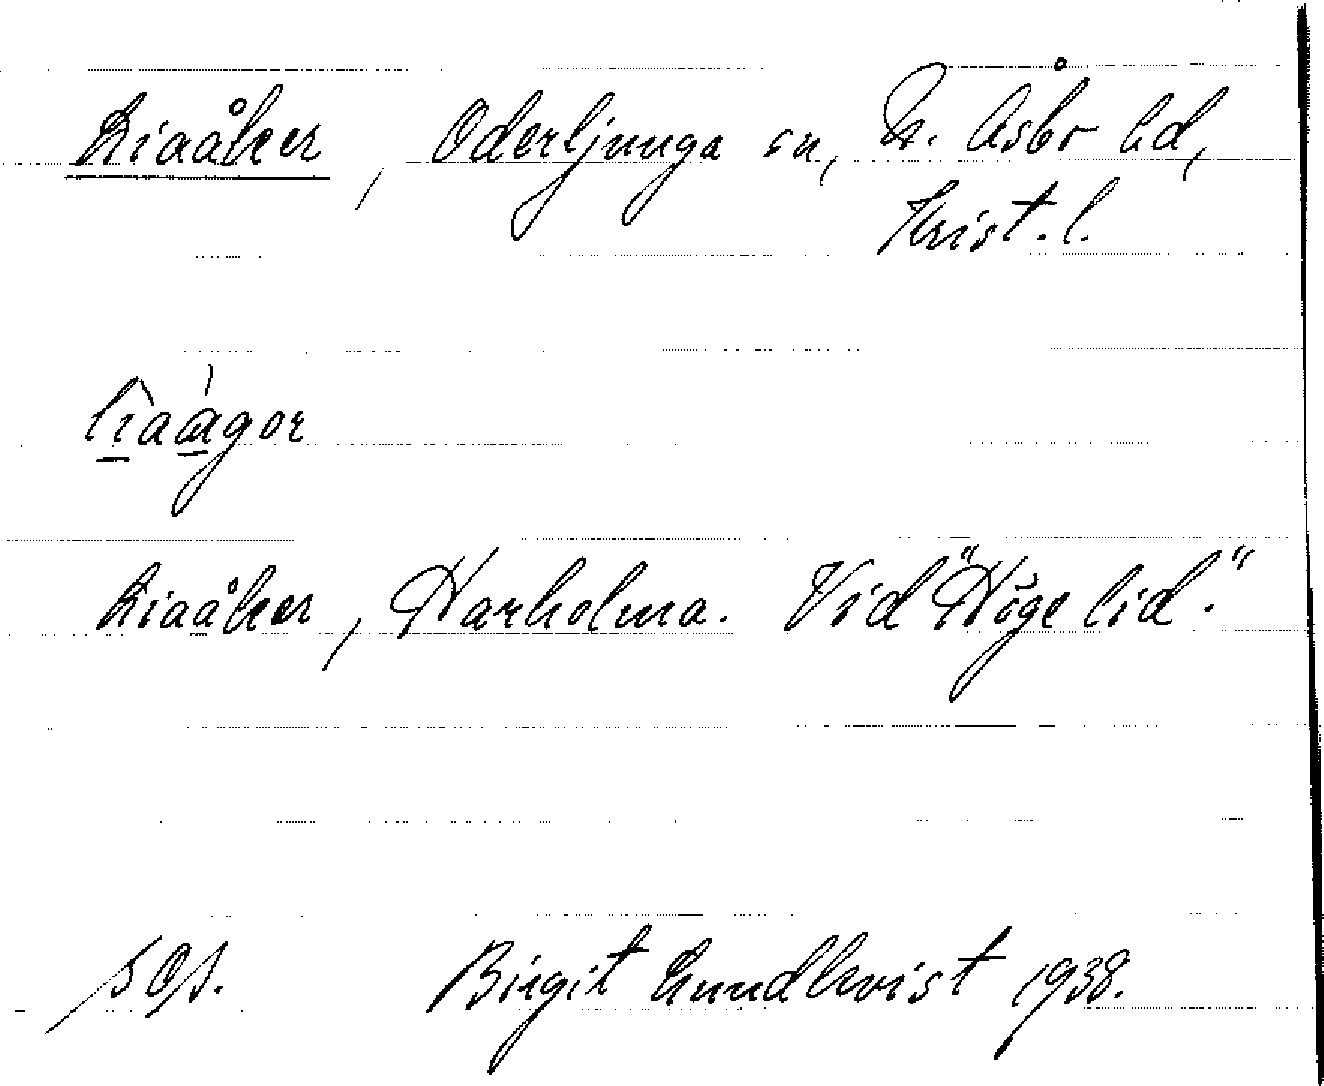 Liaåker, Oderljunga sn, N. Åsbo hd,
Krist. l.
Liaåker, Harholma. Vid "Höge lid."
sås. Birgit Lundkvist 1938.